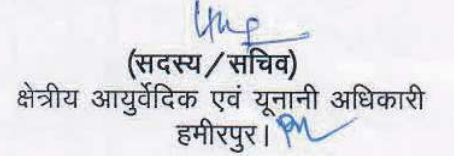 (सदस्य/सचिव)
क्षेत्रीय आयुर्वेदिक एवं यूनानी अधिकारी
हमीरपुर।